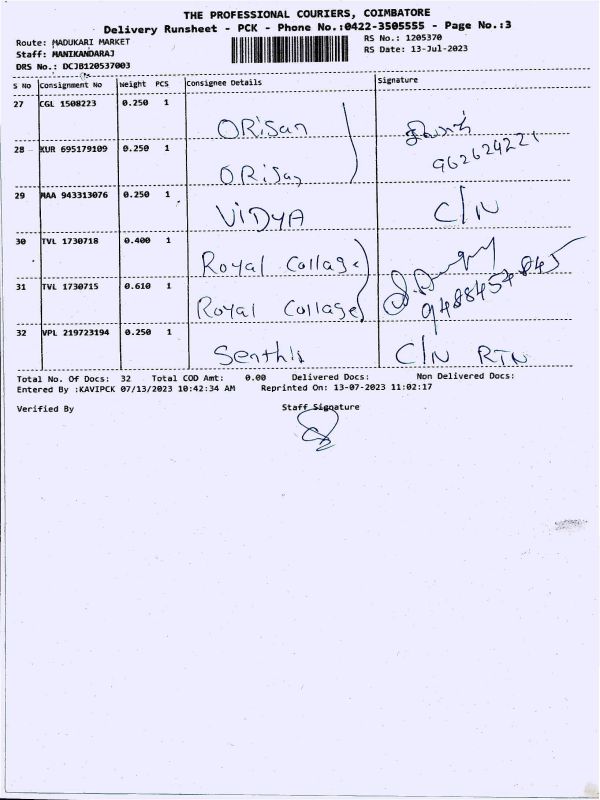 THE PROFESSIONAL COURIERS, COIMBATORE
Delivery Runsheet - PCK - Phone No.:0422-3505555 - Page No.:3
Route: MADUKARI MARKET RS No.: 1205370
Staff: MANIKANDARAJ RS Date: 13-Jul-2023
DRS No.: DCJB120537003
S No Consignment No Weight PCS Consignee Details Signature
27 CGL 1508223 0.250 1
ORiSan
28 KUR 695179109 0.250 1 962624221
ORiSan
29 MAA 943313076 0.250 1
ViDYA C/N
30 TVL 1730718 0.400 1
Royal Collage
31 TVL 1730715 0.610 1
Royal Collage 9488454845
32 VPL 219723194 0.250 1
Senthil C/N RTN
Total No. Of Docs: 32 Total COD Amt: 0.00 Delivered Docs: Non Delivered Docs:
Entered By :KAVIPCK 07/13/2023 10:42:34 AM Reprinted On: 13-07-2023 11:02:17
Verified By Staff Signature